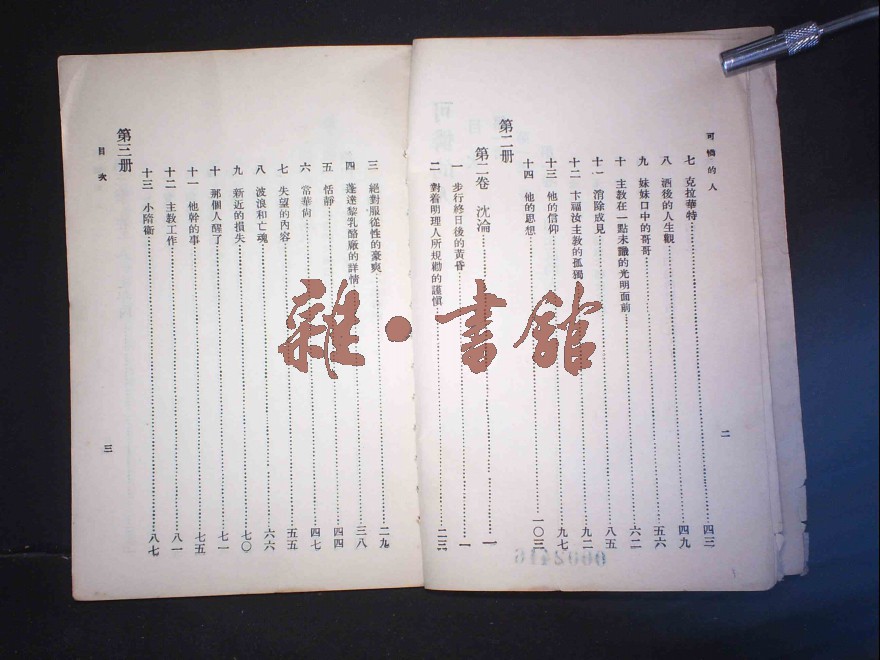 可憐的人
七 克拉華特 四三
八 酒後的人生觀 四九
九 妹妹口中的哥哥 五六
十 主教在一點未識的光明面前 六二
十一 消除成見 八五
十二 卞福汝主教的孤獨 九二
十三 他的信仰 九七
十四 他的思想 一〇三
第二册
第二卷 沈淪 一
一 步行終日後的黃昏 一
二 對着明理人所規勸的謹慎 二三
二
三 絕對服從性的豪爽 二九
四 蓬達黎乳酪廠的詳情 三八
五 恬靜 四四
六 當華尚 四七
七 失望的內容 五五
八 波浪和亡魂 六六
九 新近的損失 七〇
十 那個人醒了 七一
十一 他幹的事 七五
十二 主教工作 八一
十三 小瑞衞 八七
第三册
目次
三
雜·書館
0002416